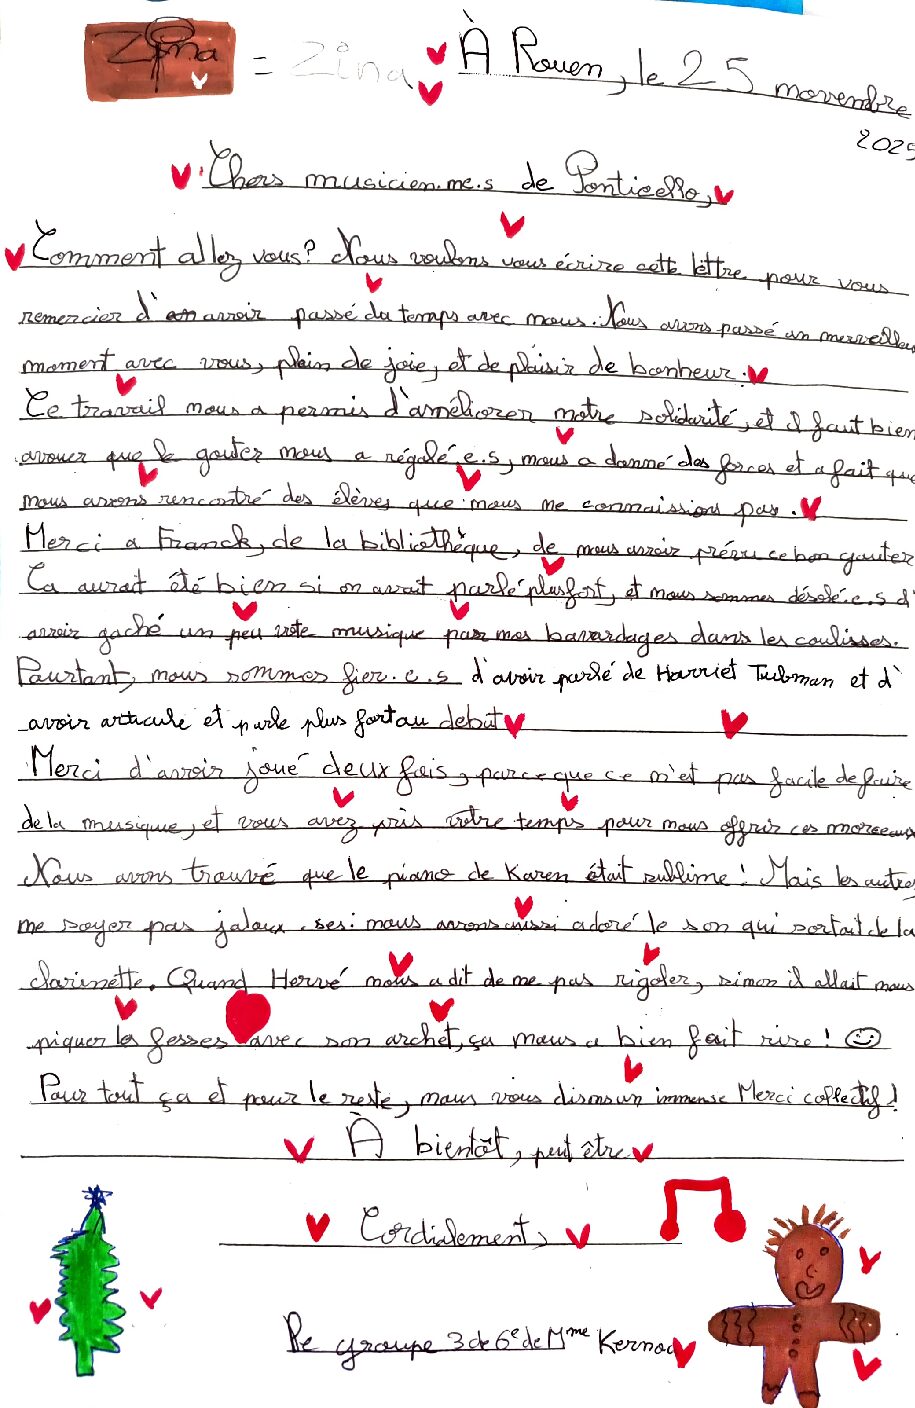 Zina = Zina
À Rouen, le 25 novembre
2025
Chers musicien.ne.s de Ponticello,
Comment allez vous? Nous voulons vous écrire cette lettre pour vous
remercier d'avoir passé du temps avec nous. Nous avons passé un merveilleux
moment avec vous, plein de joie, et de plaisir de bonheur.
Ce travail nous a permis d'améliorer notre solidarité, et il faut bien
avouer que le gouter nous a régalé.e.s, nous a donné des forces et a fait que
nous avons rencontré des élèves que nous ne connaissions pas.
Merci a Franck, de la bibliothèque, de nous avoir prévu ce bon gouter
Ca aurait été bien si on avait parlé plus fort, et nous sommes désolé.e.s d'
avoir gaché un peu vote musique par nos bavardages dans les coulisses.
Pourtant, nous sommes fier.e.s d'avoir parlé de Harriet Tubman et d'
avoir articulé et parlé plus fort au debut
Merci d'avoir joué deux fois, parce que ce n'est pas facile de faire
de la musique, et vous avez pris votre temps pour nous offrir ces morceaux
Nous avons trouvé que le piano de Karen était sublime! Mais les autres,
ne soyer pas jaloux.ses: nous avons aussi adoré le son qui sortait de la
clarinette. Quand Hervé nous a dit de ne pas rigoler, sinon il allait nous
piquer les fesses avec son archet, ça nous a bien fait rire! ☺
Pour tout ça et pour le reste, nous vous disons un immense Merci collectif!
À bientôt, peut être
Cordialement,
Le groupe 3 de 6e de Mme